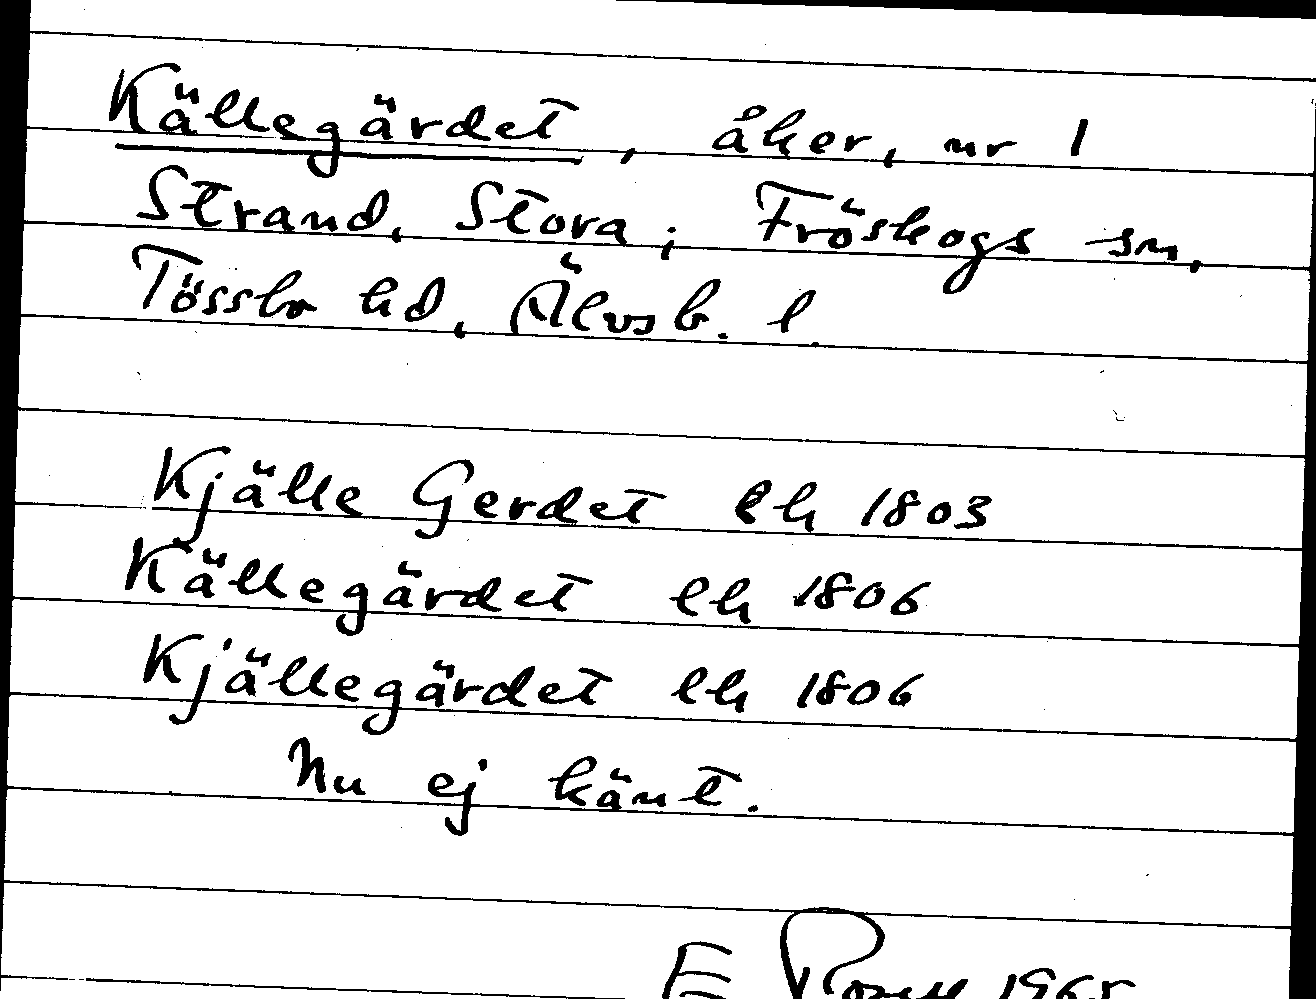 Källegärdet, åker, nr 1
Strand, Stora, Fröskogs sn,
Tössbo hd, Älvsb. l.
Kjälle Gerdet lh 1803
Källegärdet lh 1806
Kjällegärdet lh 1806
Nu ej känt.
E 1965